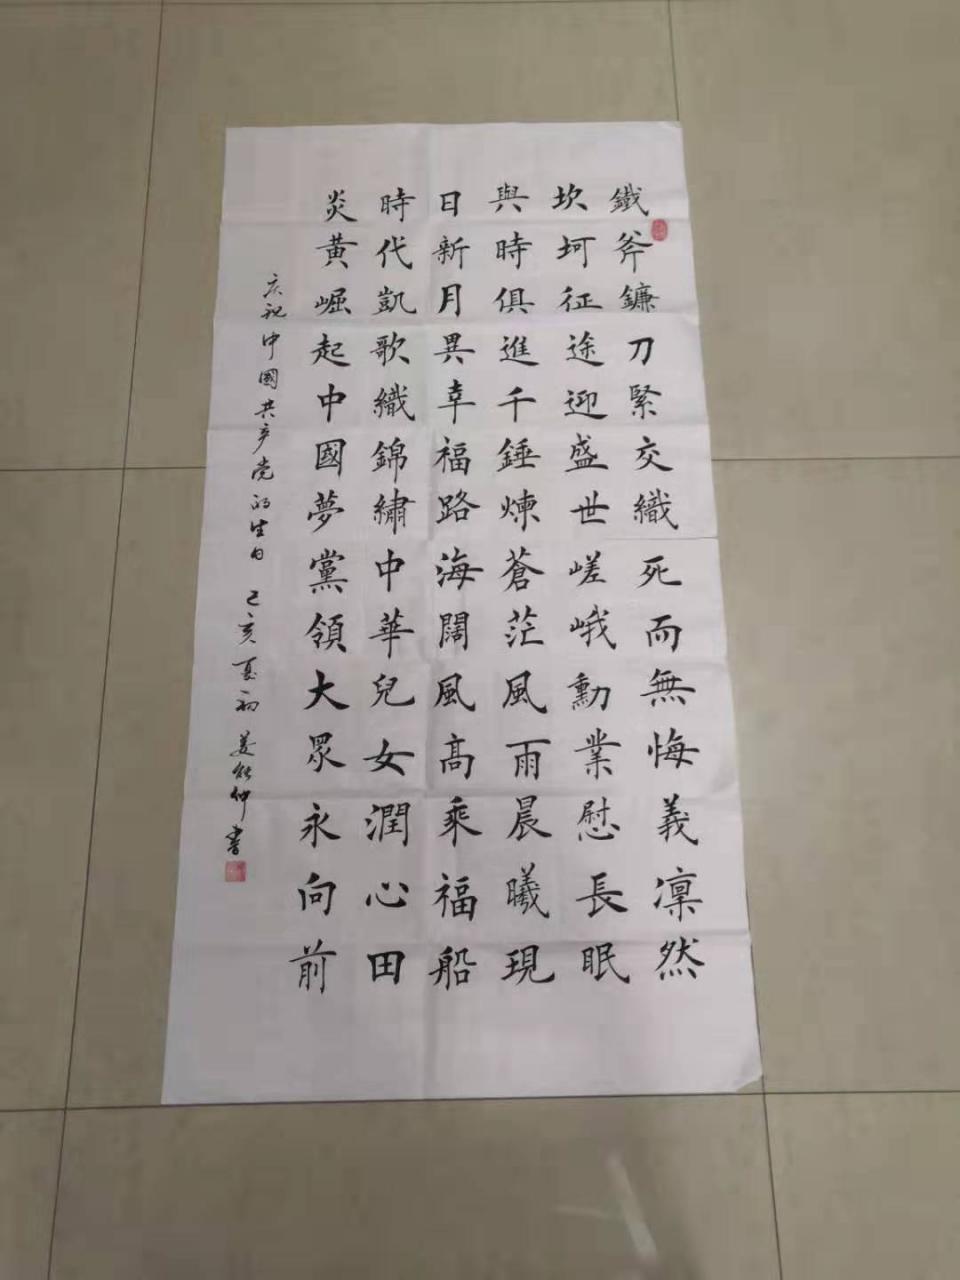 鐵斧鐮刀緊交織死而無悔義凜然
坎坷征途迎盛世嵯峨勳業慰長眠
與時俱進千錘煉蒼茫風雨晨曦現
日新月異幸福路海闊風高乘福船
時代凱歌織錦繡中華兒女潤心田
炎黃崛起中國夢黨領大眾永向前
庆祝中國共产党的生日 己亥夏初 姜能仲書